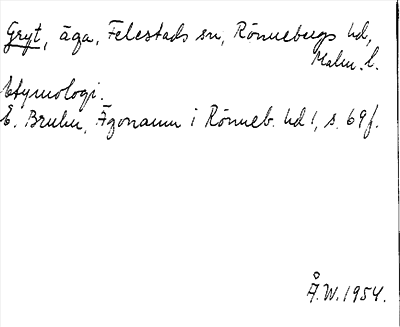 Gryt, äga, Felestads sn, Rönnebergs hd,
Malm. l.
Etymologi.
E. Bruhn, Ägonamn i Rönneb. hd 1, s. 69 f.
Å.W. 1954.